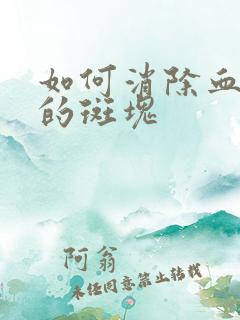 如何消除血
的斑块
阿翁
未经同意禁止转载